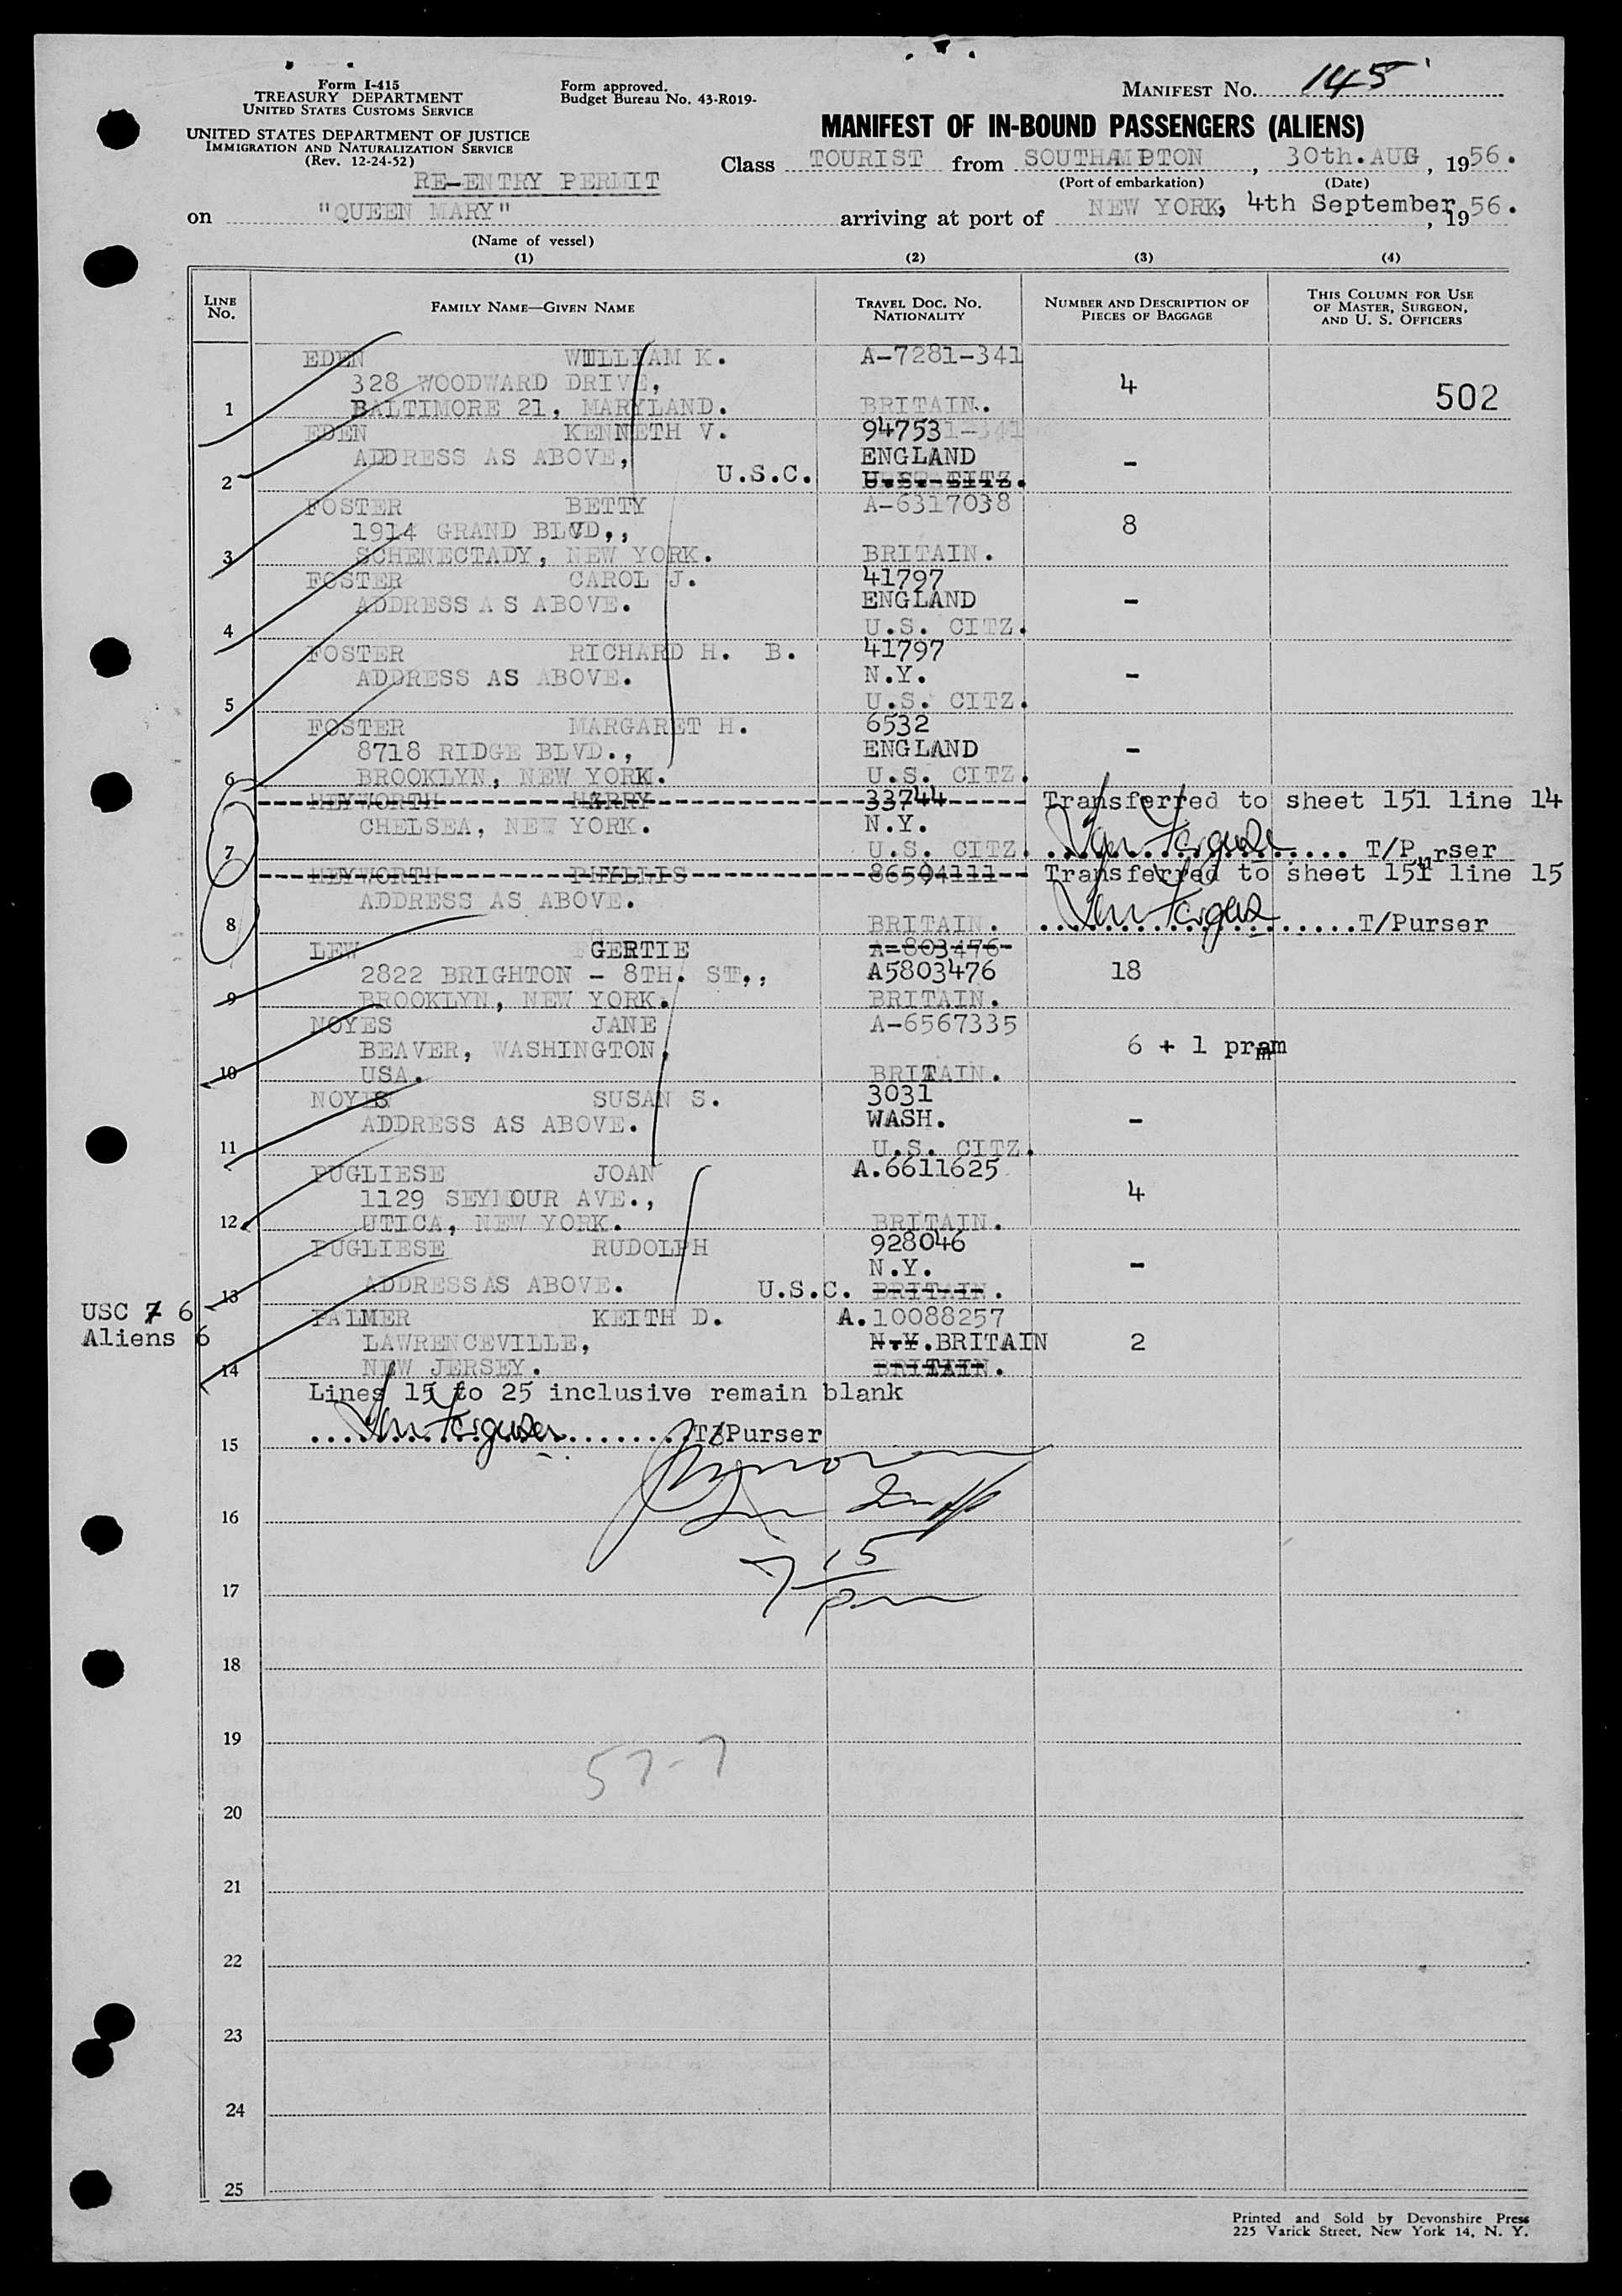 Form I-415
TREASURY DEPARTMENT
UNITED STATES CUSTOMS SERVICE
UNITED STATES DEPARTMENT OF JUSTICE
IMMIGRATION AND NATURALIZATION SERVICE
(Rev. 12-24-52)
Form approved.
Budget Bureau No. 43-R019-
MANIFEST No. 145
MANIFEST OF IN-BOUND PASSENGERS (ALIENS)
Class TOURIST from SOUTHAMPTON, 30th.AUG, 1956.
(Port of embarkation) (Date)
RE-ENTRY PERMIT
on "QUEEN MARY" arriving at port of NEW YORK, 4th September, 1956.
(Name of vessel)
(1) (2) (3) (4)
LINE No. FAMILY NAME—GIVEN NAME TRAVEL DOC. No. NATIONALITY NUMBER AND DESCRIPTION OF PIECES OF BAGGAGE THIS COLUMN FOR USE OF MASTER, SURGEON, AND U. S. OFFICERS
EDEN WILLIAM K. A-7281-341
328 WOODWARD DRIVE, 4
1 BALTIMORE 21, MARYLAND. BRITAIN. 502
EDEN KENNETH V. 947531-341
ADDRESS AS ABOVE, ENGLAND -
2 U.S.C. U.S. CITZ.
FOSTER BETTY A-6317038
1914 GRAND BLVD,, 8
3 SCHENECTADY, NEW YORK. BRITAIN.
FOSTER CAROL J. 41797
ADDRESS AS ABOVE. ENGLAND -
4 U.S. CITZ.
FOSTER RICHARD H. B. 41797
ADDRESS AS ABOVE. N.Y. -
5 U.S. CITZ.
FOSTER MARGARET H. 6532
8718 RIDGE BLVD., ENGLAND -
6 BROOKLYN, NEW YORK. U.S. CITZ.
HEYWORTH HARRY 33744 Transferred to sheet 151 line 14
CHELSEA, NEW YORK. N.Y.
7 U.S. CITZ. T/Purser
HEYWORTH PHYLLIS 86594111 Transferred to sheet 151 line 15
ADDRESS AS ABOVE.
8 BRITAIN. T/Purser
LEW GERTIE A=803476-
2822 BRIGHTON - 8TH. ST., A5803476 18
9 BROOKLYN, NEW YORK. BRITAIN.
NOYES JANE A-6567335
BEAVER, WASHINGTON, 6 + 1 pram
10 USA. BRITAIN.
NOYES SUSAN S. 3031
ADDRESS AS ABOVE. WASH. -
11 U.S. CITZ.
PUGLIESE JOAN A.6611625
1129 SEYMOUR AVE., 4
12 UTICA, NEW YORK. BRITAIN.
PUGLIESE RUDOLPH 928046
N.Y. -
13 ADDRESS AS ABOVE. U.S.C. BRITAIN.
USC 7 6
Aliens 6
PALMER KEITH D. A.10088257
LAWRENCEVILLE, N.Y.BRITAIN 2
14 NEW JERSEY. BRITAIN.
Lines 15 to 25 inclusive remain blank
15 T/Purser
16
7 15
17 pm
18
19
57-7
20
21
22
23
24
25
Printed and Sold by Devonshire Press
225 Varick Street, New York 14, N. Y.